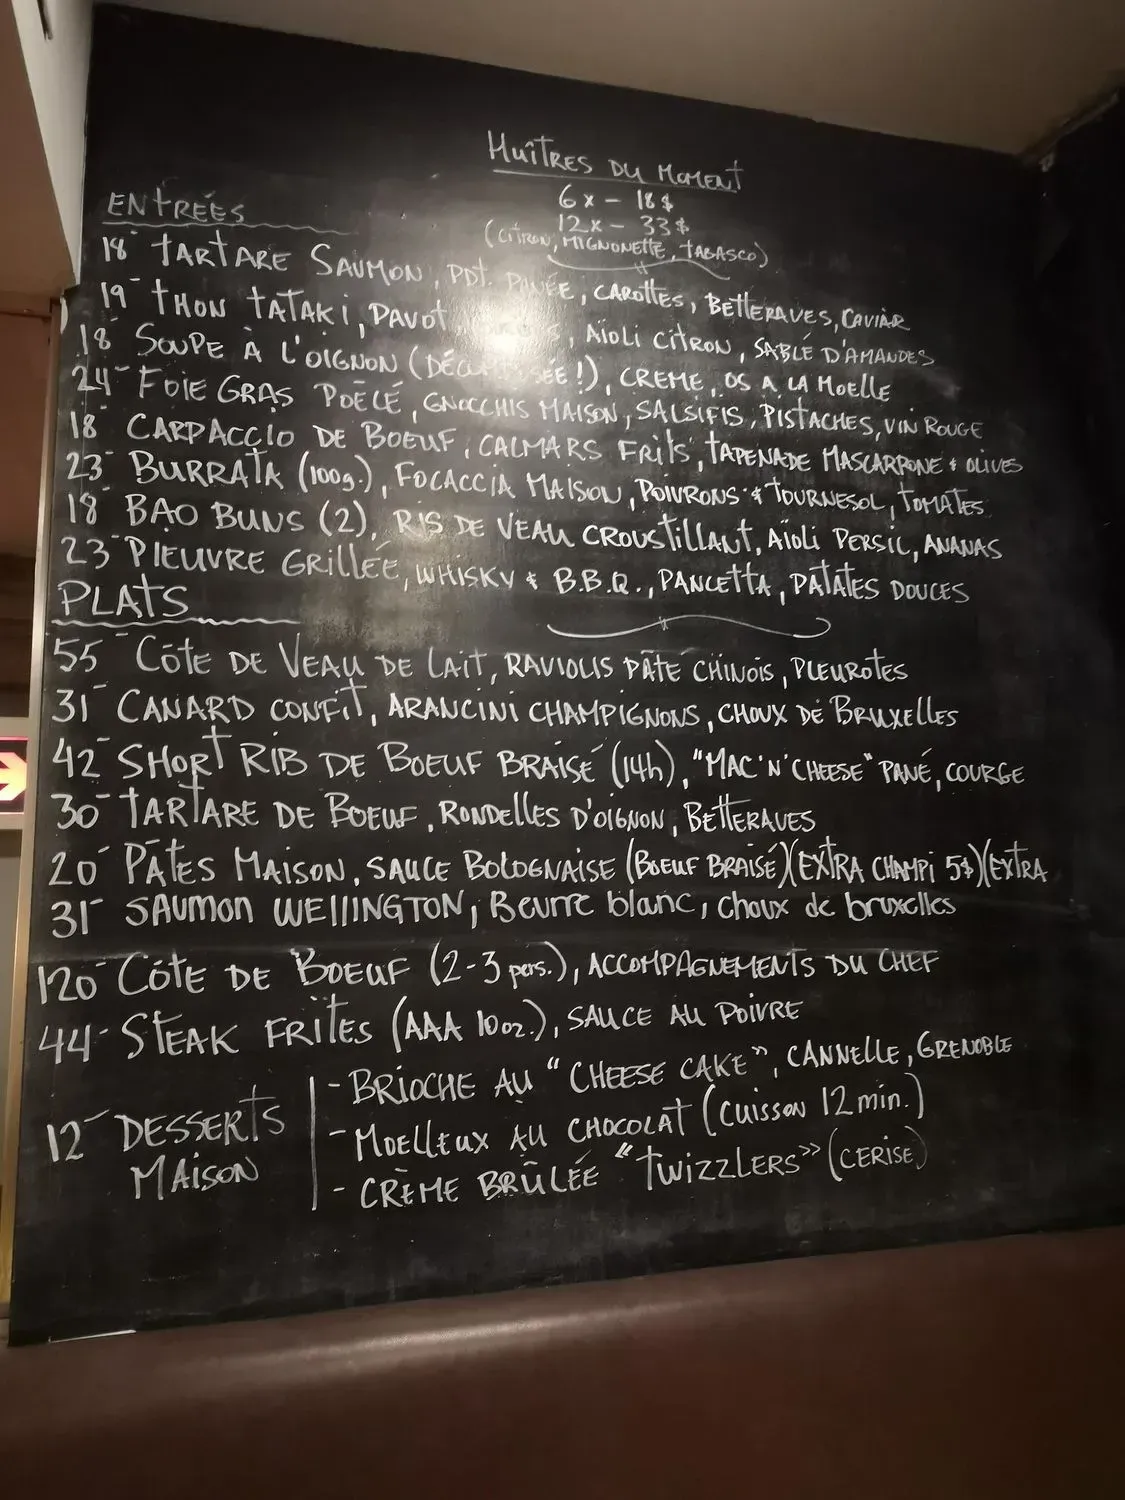 HUÎTRES DU MOMENT
6x - 18$
12x - 33$
(CITRON, MIGNONETTE, TABASCO)
ENTRÉES
18- TARTARE SAUMON, PDT. PANÉE, CAROTTES, BETTERAVES, CAVIAR
19- THON TATAKI, PAVOT, AÏOLI CITRON, SABLÉ D'AMANDES
18- SOUPE À L'OIGNON ( !), CREME, OS A LA MOELLE
24- FOIE GRAS POÊLÉ, GNOCCHIS MAISON, SALSIFIS, PISTACHES, VIN ROUGE
18- CARPACCIO DE BOEUF, CALMARS FRITS, TAPENADE MASCARPONE & OLIVES
23- BURRATA (100g.), FOCACCIA MAISON, POIVRONS & TOURNESOL, TOMATES
18- BAO BUNS (2), RIS DE VEAU CROUSTILLANT, AÏOLI PERSIL, ANANAS
23- PIEUVRE GRILLÉE, WHISKY & B.B.Q., PANCETTA, PATATES DOUCES
PLATS
55- CÔTE DE VEAU DE LAIT, RAVIOLIS PÂTE CHINOIS, PLEUROTES
31- CANARD CONFIT, ARANCINI CHAMPIGNONS, CHOUX DE BRUXELLES
42- SHORT RIB DE BOEUF BRAISÉ (14h), "MAC'N'CHEESE" PANÉ, COURGE
30- TARTARE DE BOEUF, RONDELLES D'OIGNON, BETTERAVES
20- PÂTES MAISON, SAUCE BOLOGNAISE (BOEUF BRAISÉ)(EXTRA CHAMPI 5$)(EXTRA
31- SAUMON WELLINGTON, Beurre blanc, choux de bruxelles
120- CÔTE DE BOEUF (2-3 pers.), ACCOMPAGNEMENTS DU CHEF
44- STEAK FRITES (AAA 10oz.), SAUCE AU POIVRE
12- DESSERTS MAISON
- BRIOCHE AU "CHEESE CAKE", CANNELLE, GRENOBLE
- MOELLEUX AU CHOCOLAT (CUISSON 12 min.)
- CRÈME BRÛLÉE "TWIZZLERS" (CERISE)